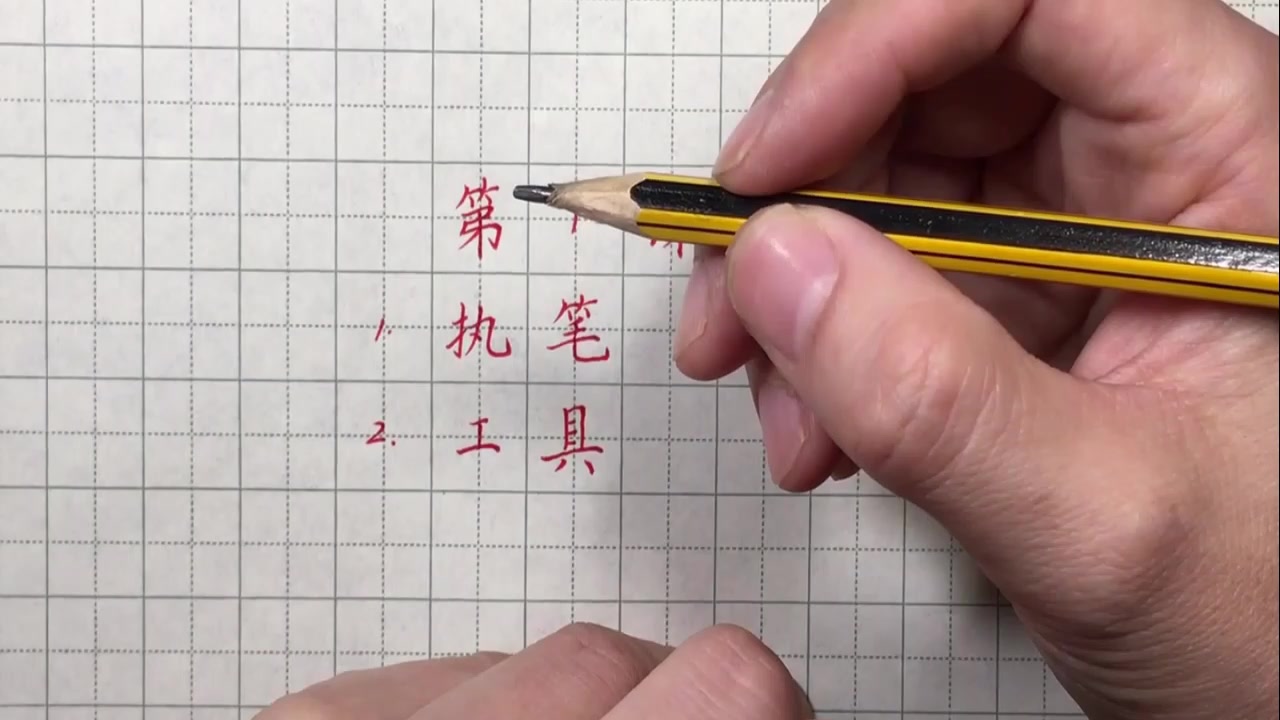 第
1. 执笔
2. 工具